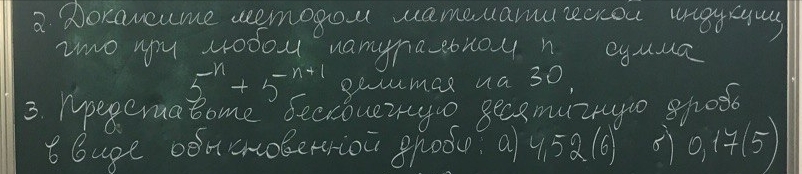 2. Докажите методом математической индукции,
что при любом натуральном n сумма
5ⁿ + 5ⁿ⁺¹ делится на 30.
3. Представьте бесконечную десятичную дробь
в виде обыкновенной дроби: а) 4,52(6) б) 0,17(5)